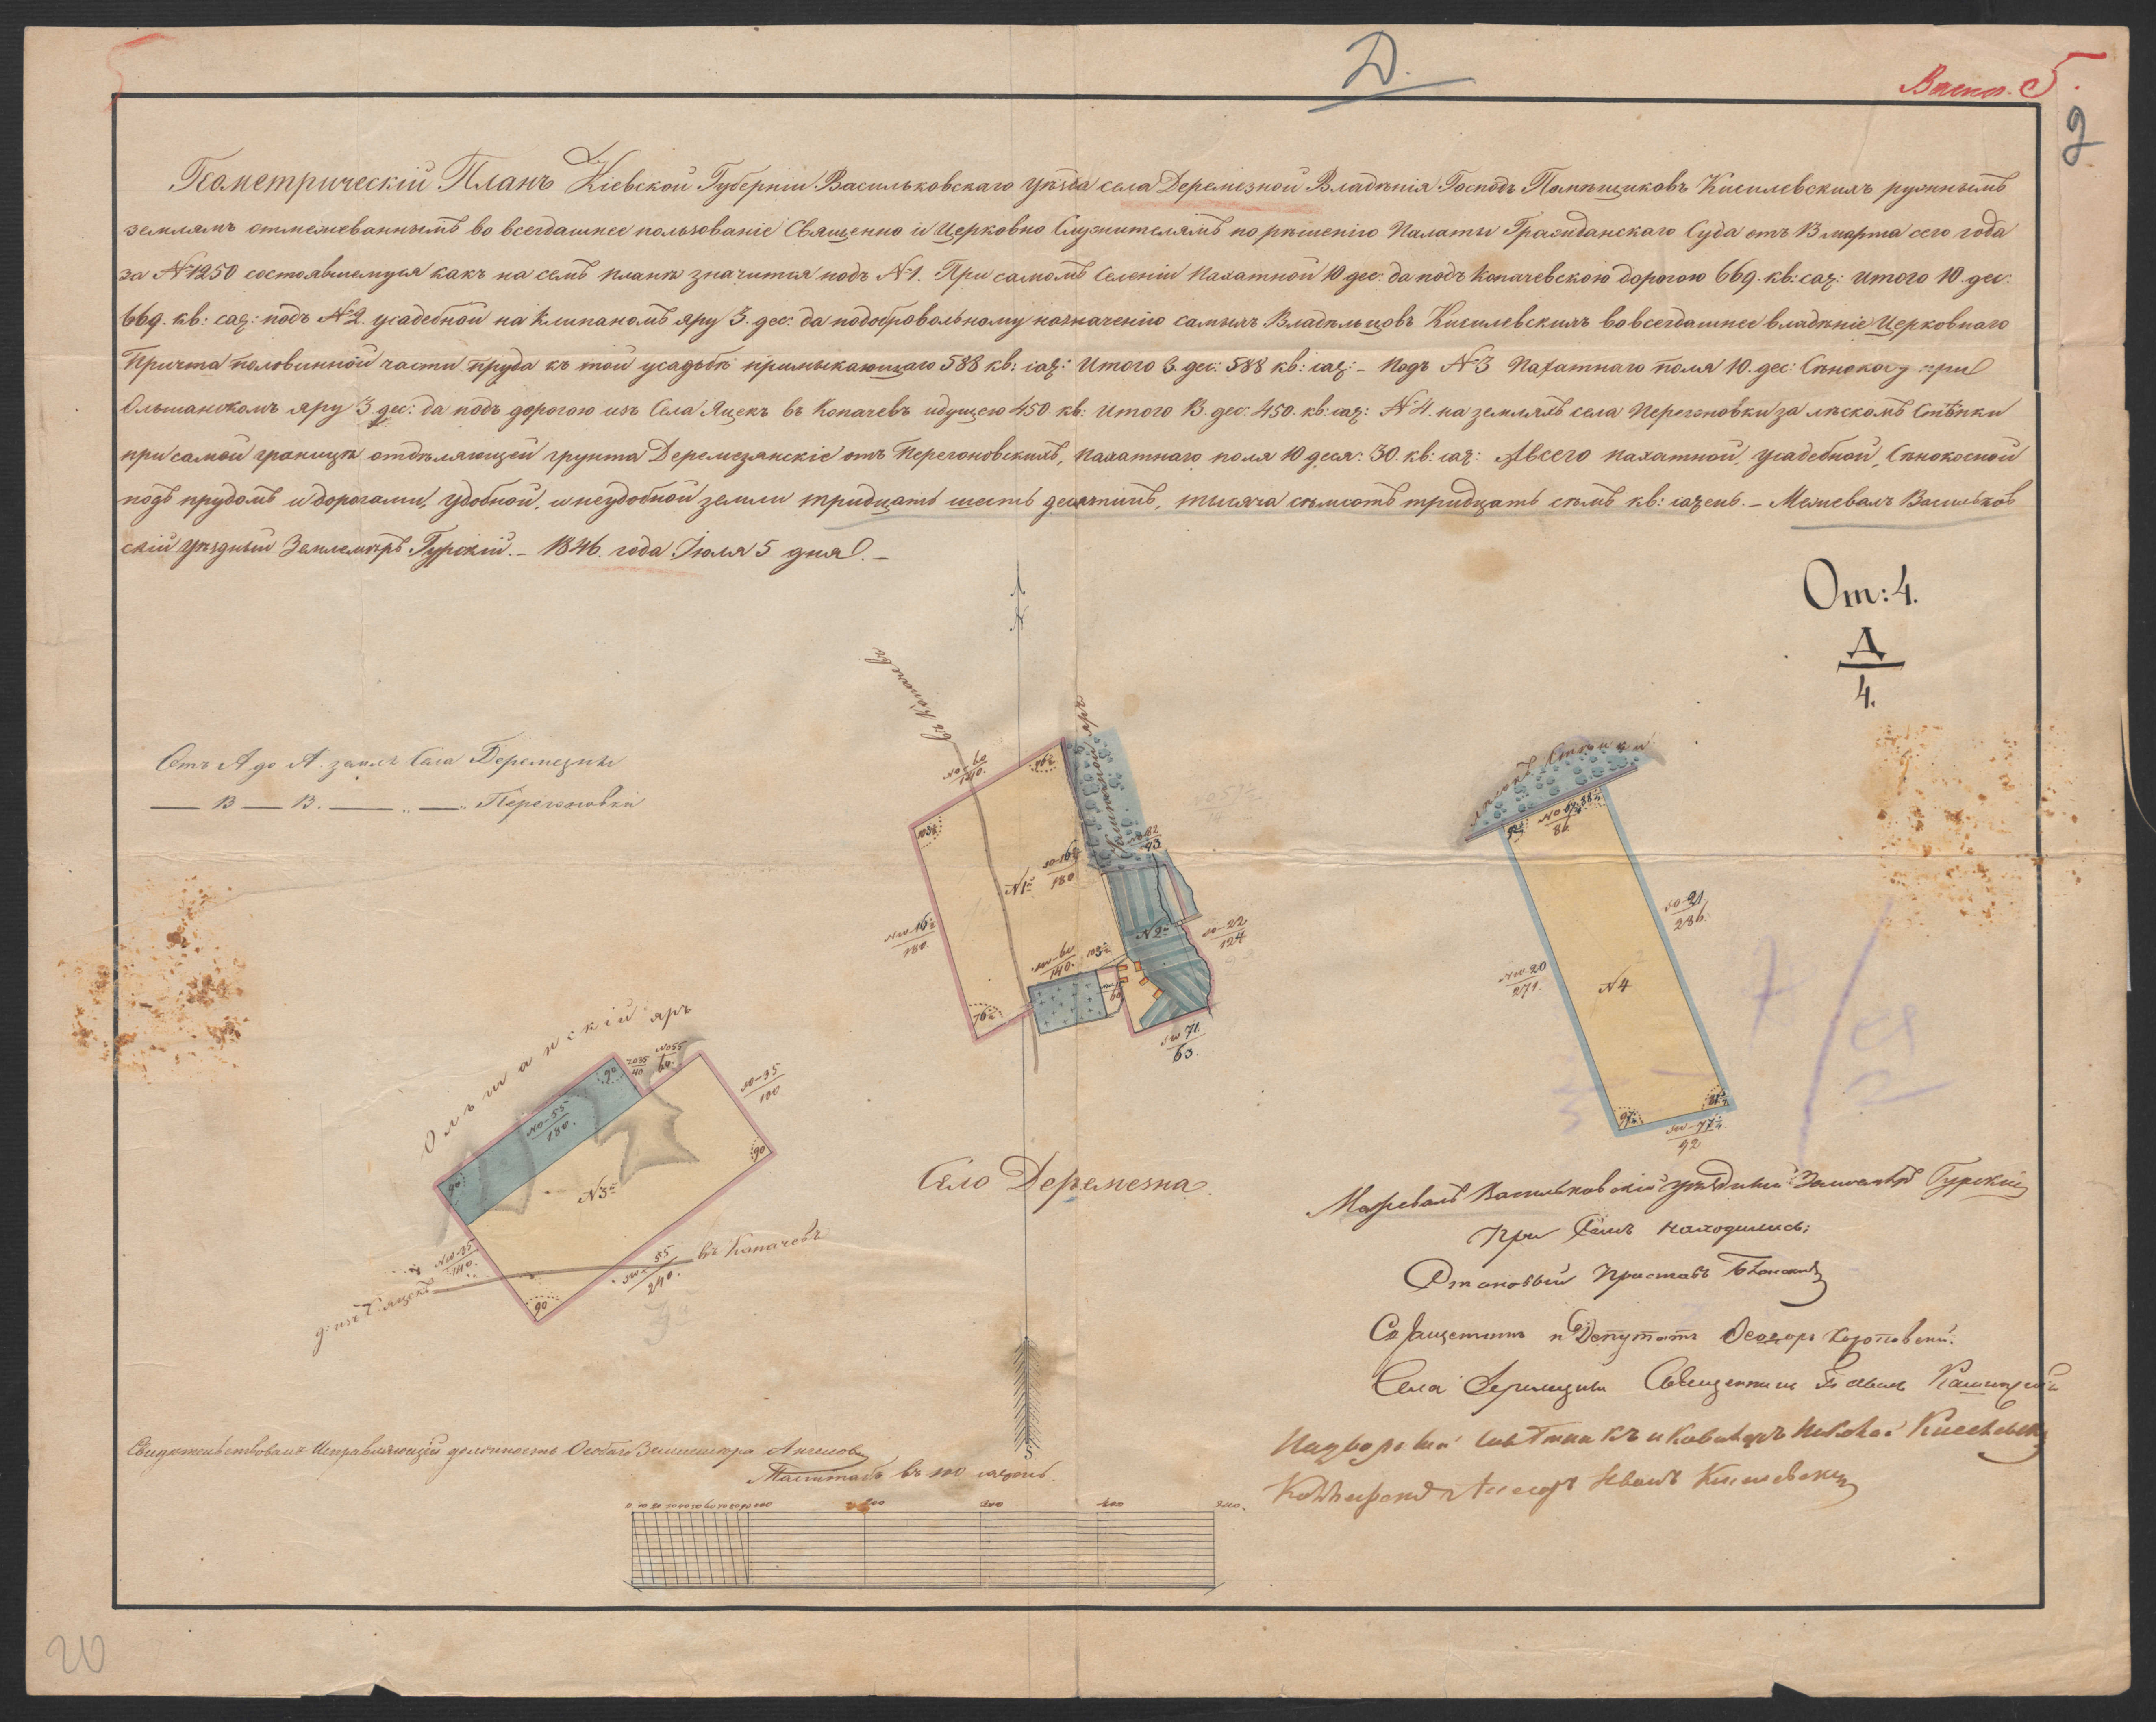 Д.
Васил. 5.
2
Геометрическій Планъ Кіевской Губерніи Васильковскаго уѣзда села Деремезной Владѣнія Господъ Помѣщиковъ Кисилевскихъ ружнымъ
землямъ отмежеваннымъ во всегдашнее пользованіе Священно и Церковно Служителямъ по рѣшенію Палаты Гражданскаго Суда отъ 13 марта сего года
за №1250 состоявшемуся какъ на семъ планѣ значится подъ №1. При самомъ Селеніи Пахатной 10 дес: да подъ Копачевскою дорогою 669. кв: саж: итого 10. дес:
669. кв: саж: подъ №2 усадебной на Клипаномъ яру 3. дес: да подобровольному назначенію самыхъ Владѣльцовъ Кисилевскихъ во всегдашнее владѣніе Церковнаго
Причта половинной части пруда къ той усадьбѣ примыкающаго 588 кв: саж: Итого 3. дес: 588 кв: саж: - Подъ №3 Пахатнаго поля 10. дес: Сѣнокосу при
Ольшанскомъ яру 3 дес: да подъ дорогою изъ Села Яцекъ въ Копачевъ идущею 450 кв: итого 13. дес: 450. кв: саж: №4. на земляхъ села Перегоновки за лѣскомъ Стѣнки
при самой границѣ отдѣляющей грунта Деремезянскіе отъ Перегоновскихъ, пахатнаго поля 10 деся: 30. кв: саж: Авсего пахатной, усадебной, Сѣнокосной
подъ прудомъ и дорогами, удобной, и неудобной земли тридцать шесть десятинъ, тысяча сѣмсотъ тридцать сѣмъ кв: сажень. - Межевалъ Васильков
скій уѣздный Землемѣръ Гурскій. - 1846. года Іюля 5 дня. -
От: 4.
Д
4.
N
въ Копачевъ
яръ
лѣсокъ Стѣнки
Отъ А до А. земля Села Деремезны
— В — В. — „ — „ Перегоновки
NO-60
140.
103½
76½
NO-82
93.
SO-16½
180
№1й
NW-16½
180
№2й
SO-22
124
SW-60
140.
103½
76½
SW 71
63.
86.
SO-21
286.
NW-20
271.
№4
SW-77¾
92
Ольшанскій яръ
90
2035
40
NO55
60.
SO-35
100
NO-55
180.
90
№3й
90
NW-35
140.
SW-55
240.
90
въ Копачевъ
д: изъ С. Яцекъ
Село Деремезна.
Межевалъ Васильковскій уѣздный Землемѣръ Гурскій
При семъ находились:
Становый Приставъ
Священникъ и Депутатъ Ѳеодоръ
Села Деремезны Священникъ
Надворный Совѣтникъ и Кавалеръ Николай Киселевскій
Коллежскій Ассесоръ Иванъ Киселевскій
Свидѣтельствовалъ Исправляющій должность Особаго Землемѣра
S
Масштабъ въ 100 сажень.
0 10 20 30 40 50 60 70 80 90 100
20